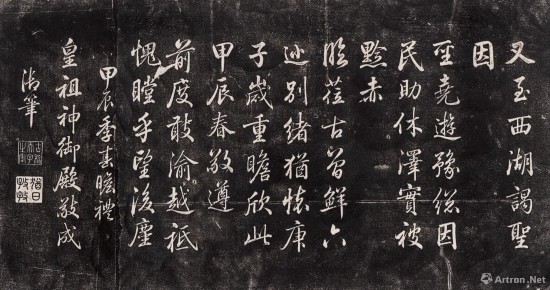 又至西湖謁聖
因
聖堯遊豫總因
民助休澤實被
黔赤
臨莅古曾鮮六
巡別緒猶懷庚
子歲重瞻欣此
甲辰春敬遵
前度敢渝越祇
愧瞠乎望後塵
甲辰季春瞻禮
皇祖神御殿敬成
御筆
古稀天子之寶
猶日孜孜
Artron.Net